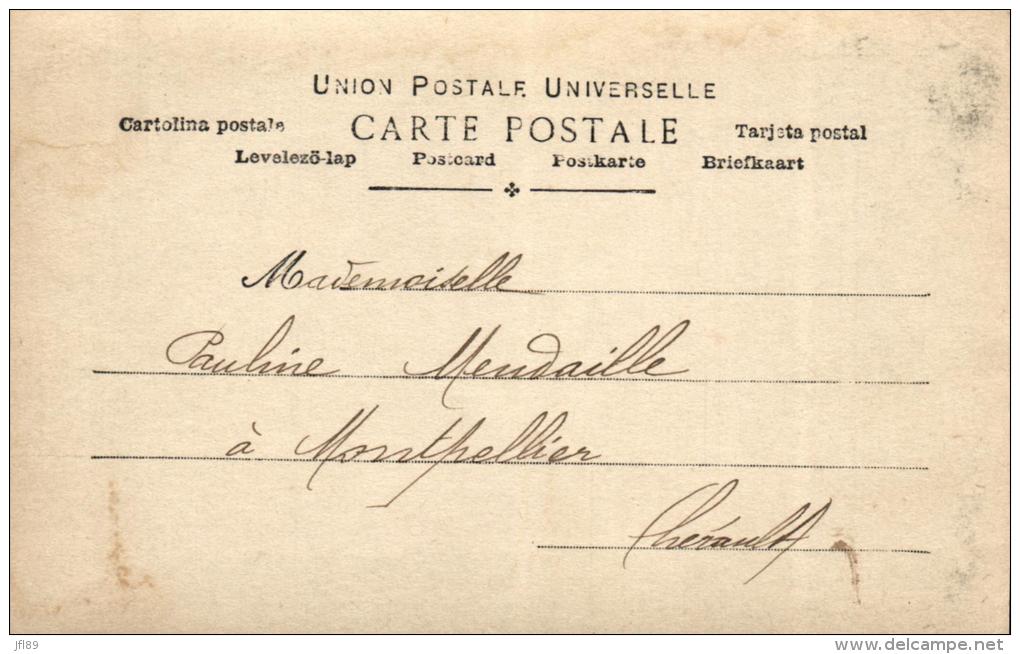 UNION POSTALE UNIVERSELLE
Cartolina postale CARTE POSTALE Tarjeta postal
Levelező-lap Postcard Postkarte Briefkaart
Mademoiselle
Pauline Mendaille
à Montpellier
Lhérault
jfl89
www.delcampe.net